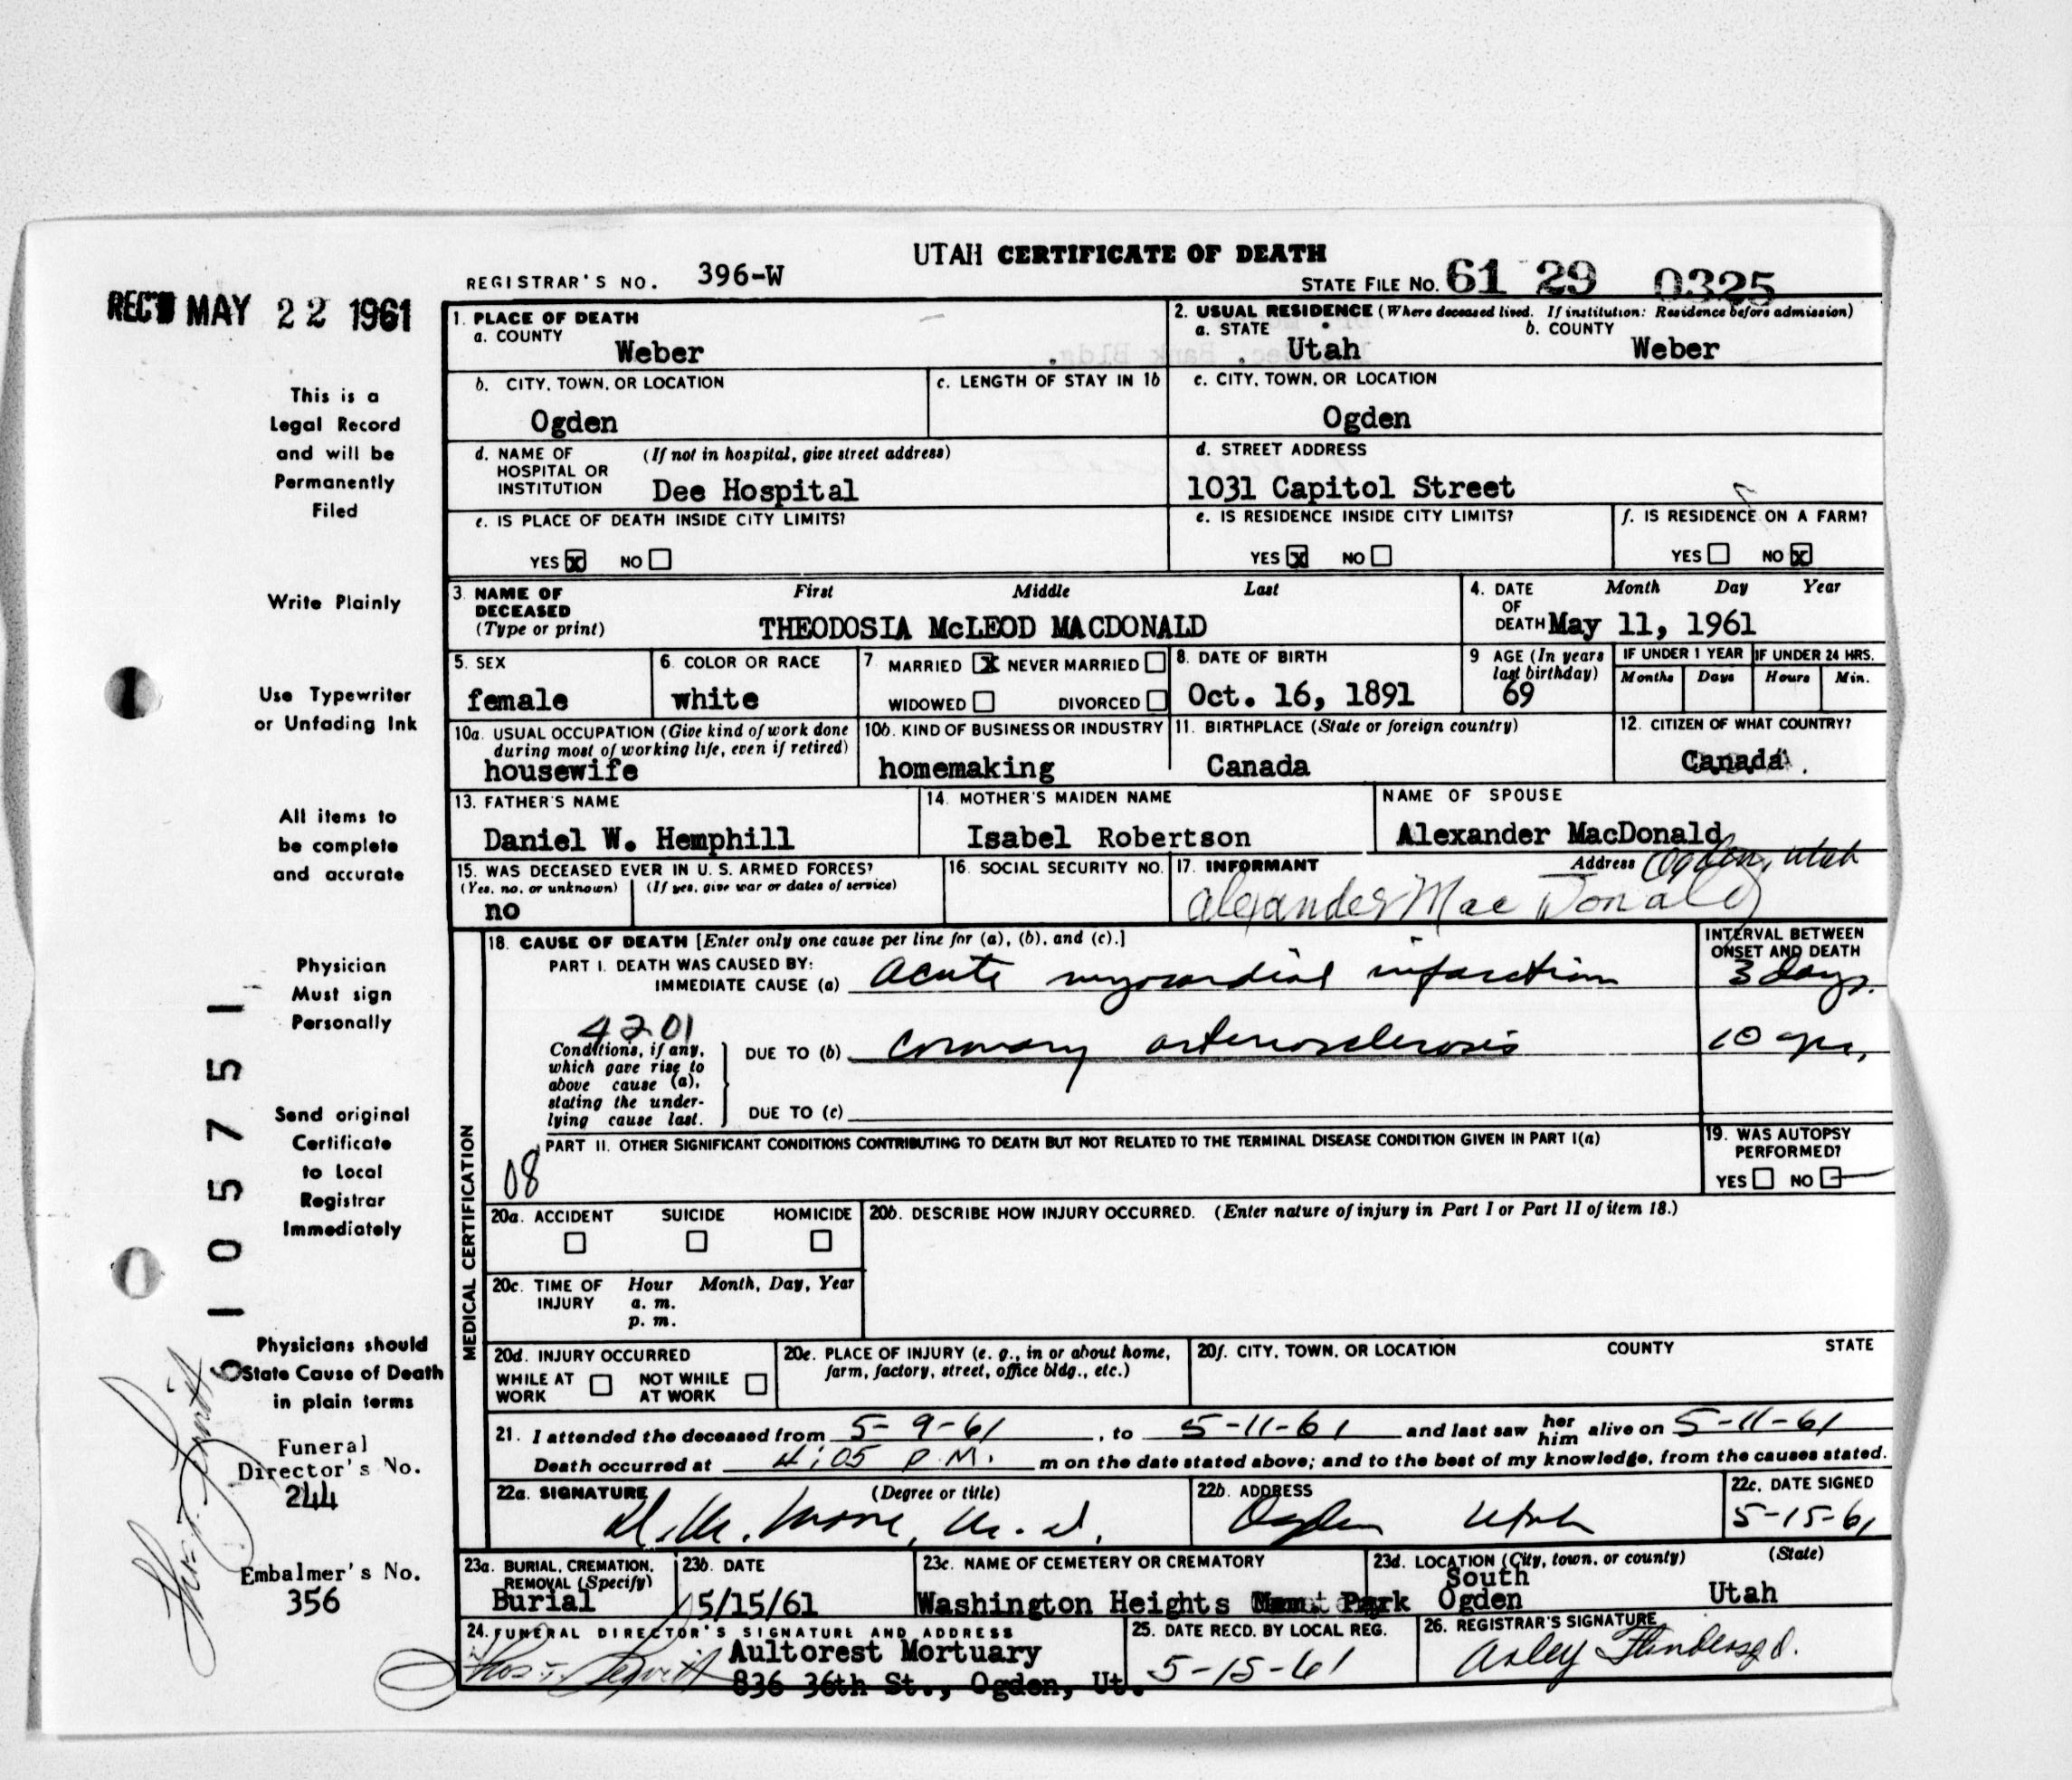 UTAH CERTIFICATE OF DEATH
REGISTRAR'S NO. 396-W
STATE FILE NO. 61 29 0325
REC'D MAY 22 1961
This is a
Legal Record
and will be
Permanently
Filed
Write Plainly
Use Typewriter
or Unfading Ink
All items to
be complete
and accurate
Physician
Must sign
Personally
Send original
Certificate
to Local
Registrar
Immediately
Physicians should
State Cause of Death
in plain terms
Funeral
Director's No.
244
Embalmer's No.
356
105751
1. PLACE OF DEATH
a. COUNTY
Weber
2. USUAL RESIDENCE (Where deceased lived. If institution: Residence before admission)
a. STATE b. COUNTY
Utah Weber
b. CITY, TOWN, OR LOCATION
Ogden
c. LENGTH OF STAY IN 1b
c. CITY, TOWN, OR LOCATION
Ogden
d. NAME OF (If not in hospital, give street address)
HOSPITAL OR
INSTITUTION Dee Hospital
d. STREET ADDRESS
1031 Capitol Street
e. IS PLACE OF DEATH INSIDE CITY LIMITS?
YES X NO
e. IS RESIDENCE INSIDE CITY LIMITS?
YES X NO
f. IS RESIDENCE ON A FARM?
YES NO X
3. NAME OF First Middle Last
DECEASED
(Type or print) THEODOSIA McLEOD MACDONALD
4. DATE Month Day Year
OF
DEATH May 11, 1961
5. SEX
female
6. COLOR OR RACE
white
7. MARRIED X NEVER MARRIED
WIDOWED DIVORCED
8. DATE OF BIRTH
Oct. 16, 1891
9 AGE (In years
last birthday)
69
IF UNDER 1 YEAR IF UNDER 24 HRS.
Months Days Hours Min.
10a. USUAL OCCUPATION (Give kind of work done
during most of working life, even if retired)
housewife
10b. KIND OF BUSINESS OR INDUSTRY
homemaking
11. BIRTHPLACE (State or foreign country)
Canada
12. CITIZEN OF WHAT COUNTRY?
Canada
13. FATHER'S NAME
Daniel W. Hemphill
14. MOTHER'S MAIDEN NAME
Isabel Robertson
NAME OF SPOUSE
Alexander MacDonald
15. WAS DECEASED EVER IN U. S. ARMED FORCES?
(Yes, no, or unknown) (If yes, give war or dates of service)
no
16. SOCIAL SECURITY NO.
17. INFORMANT Address Ogden, Utah
Alexander MacDonald
MEDICAL CERTIFICATION
18. CAUSE OF DEATH [Enter only one cause per line for (a), (b), and (c).]
INTERVAL BETWEEN
ONSET AND DEATH
PART I. DEATH WAS CAUSED BY:
IMMEDIATE CAUSE (a) Acute myocardial infarction 3 days.
4201
Conditions, if any,
which gave rise to
above cause (a),
stating the under-
lying cause last.
DUE TO (b) coronary arteriosclerosis 10 yrs.
DUE TO (c)
PART II. OTHER SIGNIFICANT CONDITIONS CONTRIBUTING TO DEATH BUT NOT RELATED TO THE TERMINAL DISEASE CONDITION GIVEN IN PART I(a)
08
19. WAS AUTOPSY
PERFORMED?
YES NO
20a. ACCIDENT SUICIDE HOMICIDE
20b. DESCRIBE HOW INJURY OCCURRED. (Enter nature of injury in Part I or Part II of item 18.)
20c. TIME OF Hour Month, Day, Year
INJURY a. m.
p. m.
20d. INJURY OCCURRED
WHILE AT NOT WHILE
WORK AT WORK
20e. PLACE OF INJURY (e. g., in or about home,
farm, factory, street, office bldg., etc.)
20f. CITY, TOWN, OR LOCATION COUNTY STATE
21. I attended the deceased from 5-9-61, to 5-11-61 and last saw her him alive on 5-11-61
Death occurred at 4:05 P.M. m on the date stated above; and to the best of my knowledge, from the causes stated.
22a. SIGNATURE (Degree or title)
Moore, M.D.
22b. ADDRESS
Ogden Utah
22c. DATE SIGNED
5-15-61
23a. BURIAL, CREMATION,
REMOVAL (Specify)
Burial
23b. DATE
5/15/61
23c. NAME OF CEMETERY OR CREMATORY
Washington Heights Mem. Park
23d. LOCATION (City, town, or county) (State)
South
Ogden Utah
24. FUNERAL DIRECTOR'S SIGNATURE AND ADDRESS
Aultorest Mortuary
836 36th St., Ogden, Ut.
25. DATE RECD. BY LOCAL REG.
5-15-61
26. REGISTRAR'S SIGNATURE